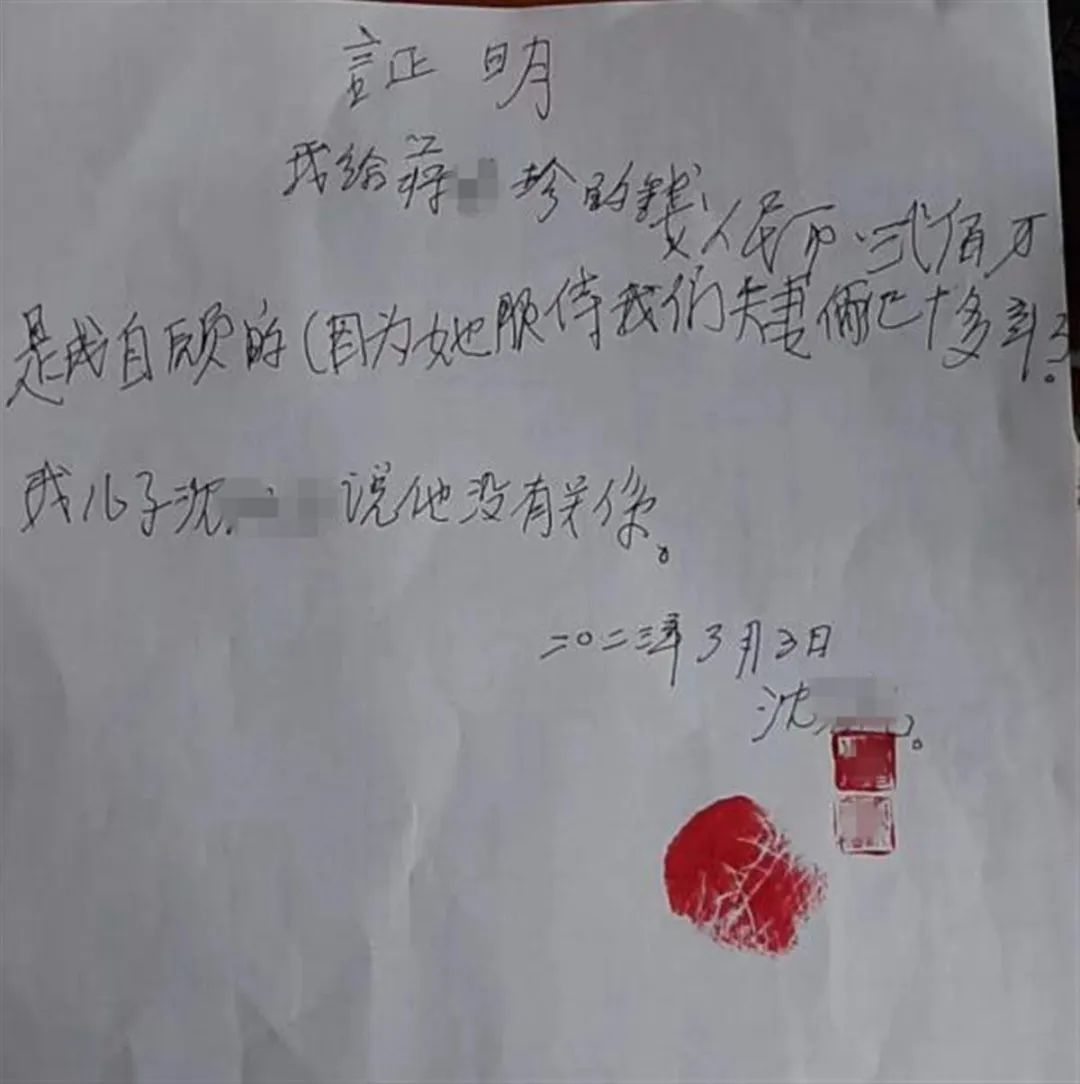 証明
我给蒋 珍的钱
人民币贰佰万
是我自愿的(因为她服侍我们夫妻俩已十多年了。
我儿子沈 说他没有关系。
二〇二三年3月3日
沈